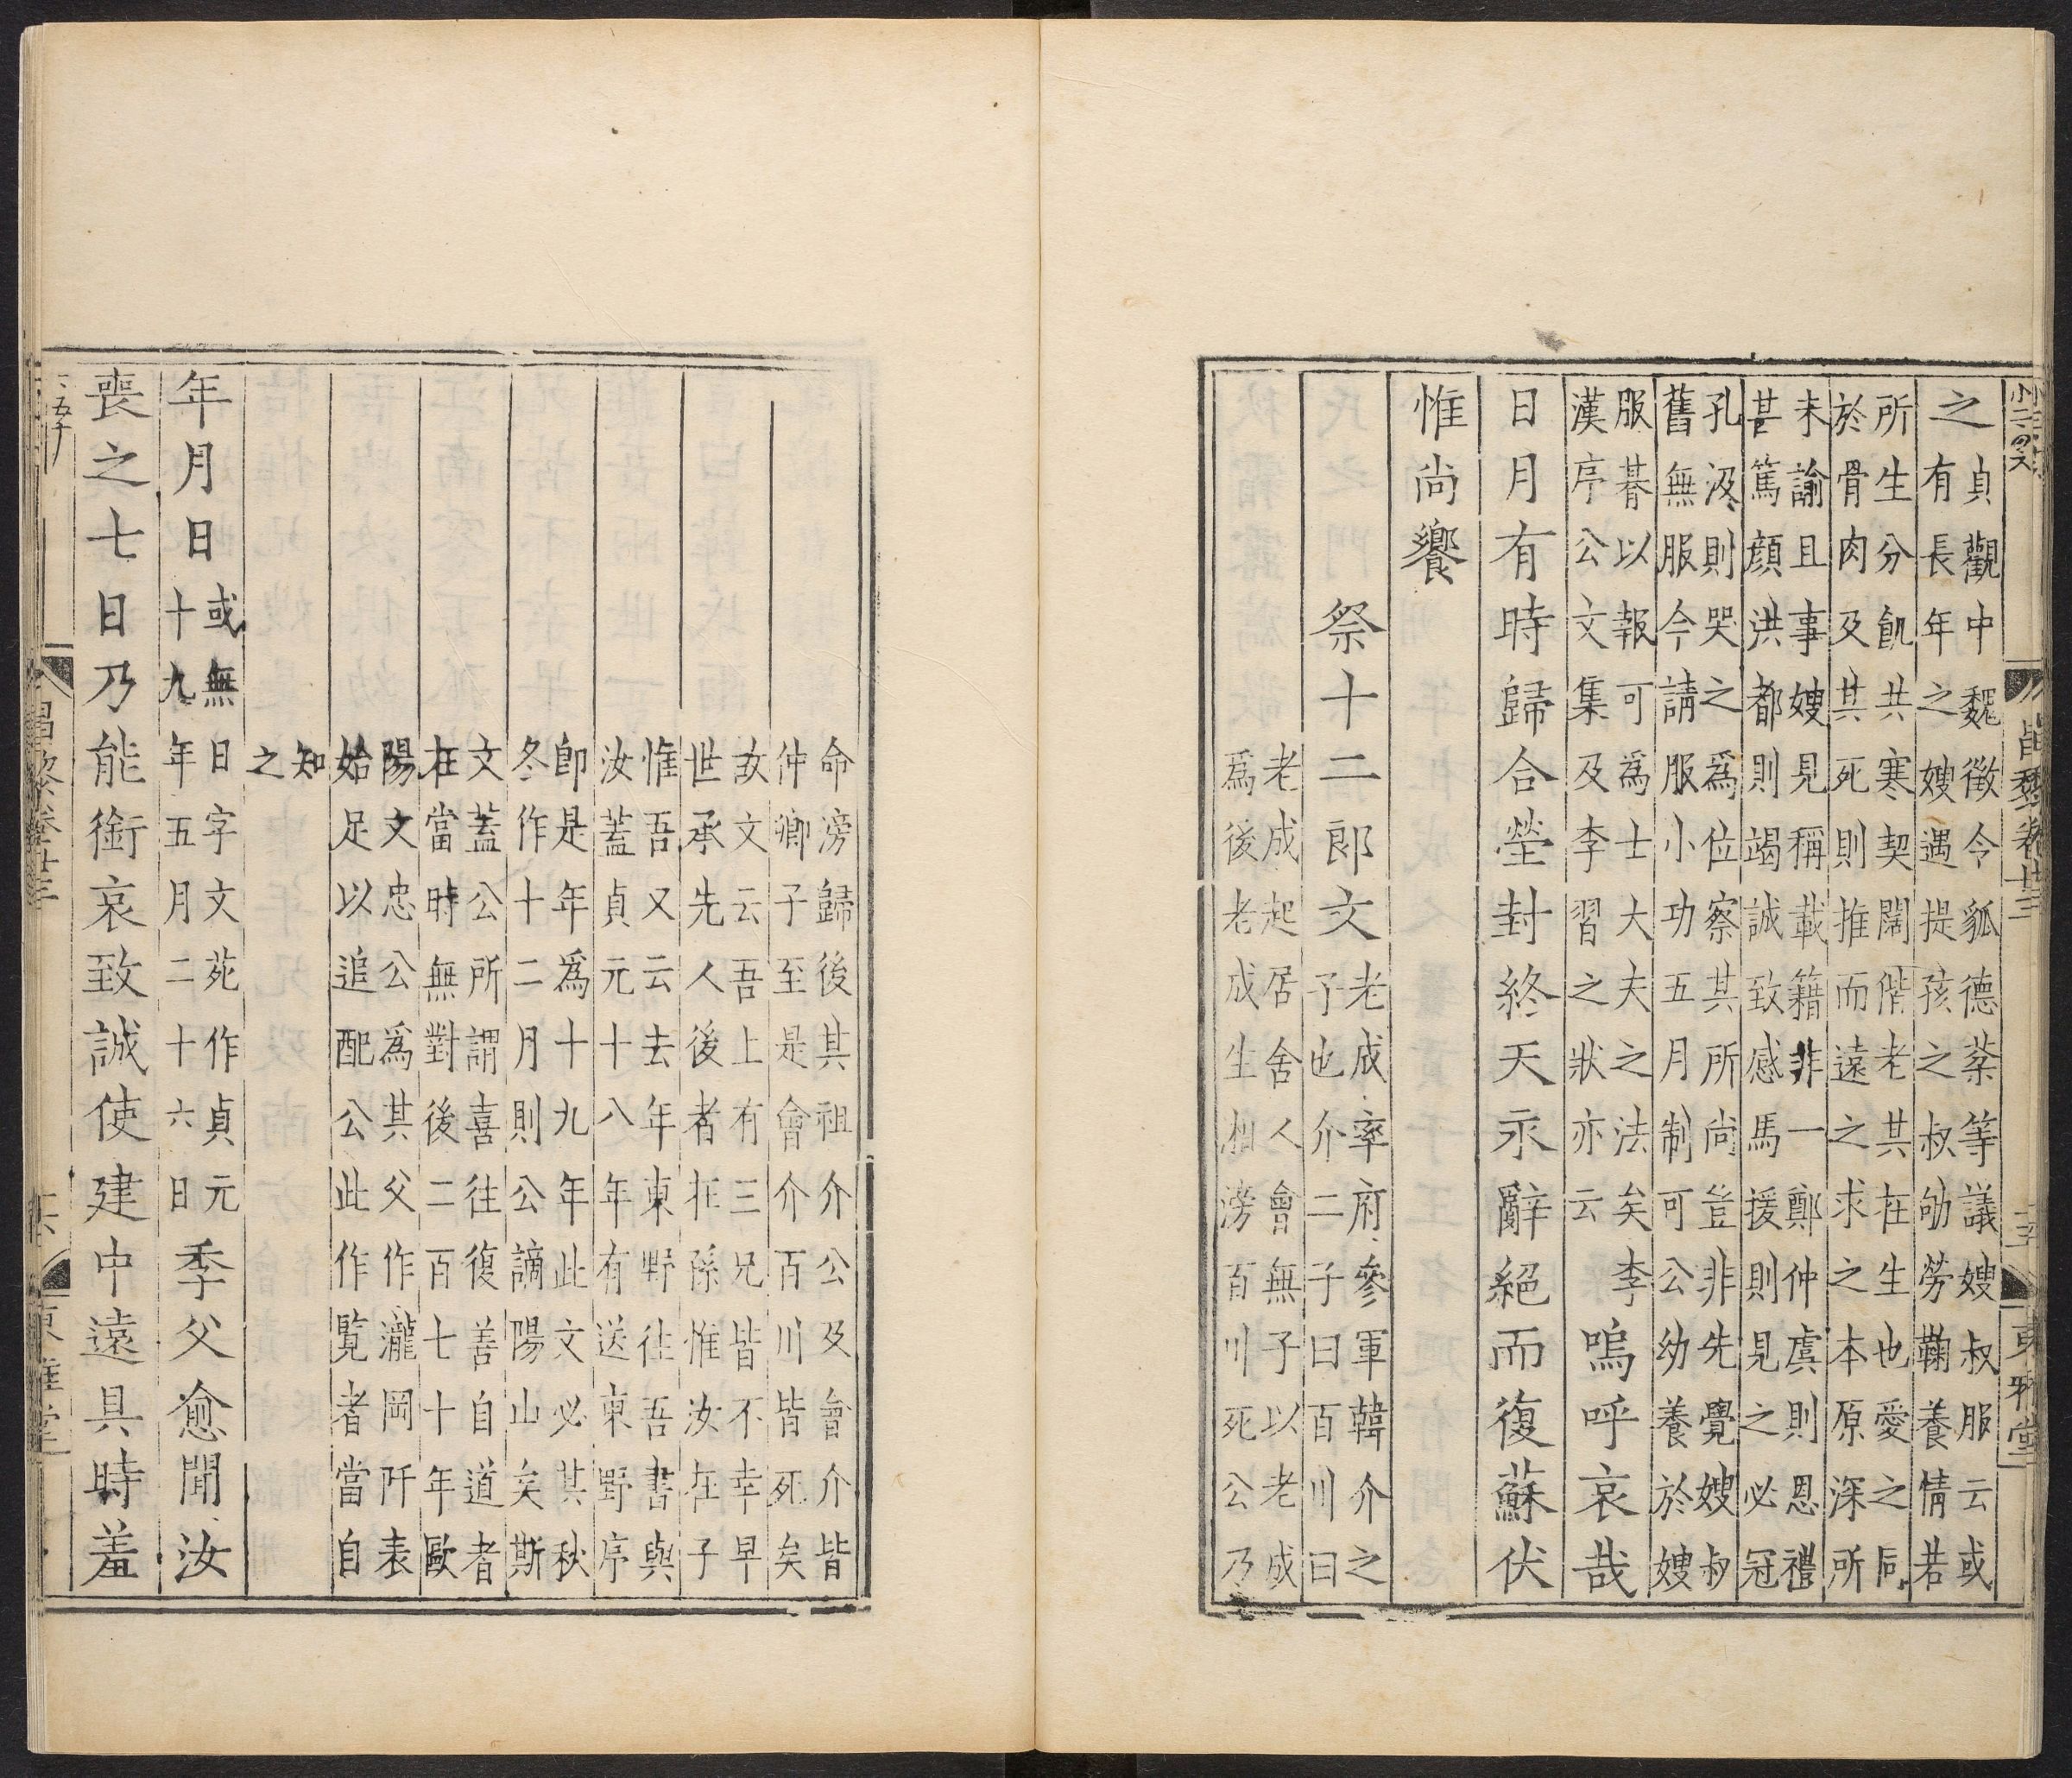 昌黎卷廿三
東雅堂
之貞觀中魏徵令狐德棻等議嫂叔服云或
有長年之嫂遇提孩之叔劬勞鞠養情若
所生分飢共寒契闊偕老其在生也愛之同
於骨肉及其死則推而遠之求之本原深所
未諭且事嫂見稱載籍非一鄭仲虞則恩禮
甚篤顔洪都則竭誠致感馬援則見之必冠
孔汲則哭之爲位察其所尚豈非先覺嫂叔
舊無服今請服小功五月制可公幼養於嫂
服朞以報可爲士大夫之法矣李
漢序公文集及李習之狀亦云
嗚呼哀哉
日月有時歸合塋封終天永辭絕而復蘇伏
惟尚饗
祭十二郎文
老成率府參軍韓介之
子也介二子曰百川曰
老成起居舍人會無子以老成
爲後老成生湘滂百川死公乃
命滂歸後其祖介公及會介皆
仲卿子至是會介百川皆死矣
故文云吾上有三兄皆不幸早
世承先人後者在孫惟汝在子
惟吾又云去年東野往吾書與
汝蓋貞元十八年有送東野序
卽是年爲十九年此文必其秋
冬作十二月則公謫陽山矣斯
文蓋公所謂喜往復善自道者
在當時無對後二百七十年歐
陽文忠公爲其父作瀧岡阡表
始足以追配公此作覽者當自
知
之
年月日
或無日字文苑作貞元
十九年五月二十六日
季父愈聞汝
喪之七日乃能銜哀致誠使建中遠具時羞
昌黎卷廿三
東雅堂